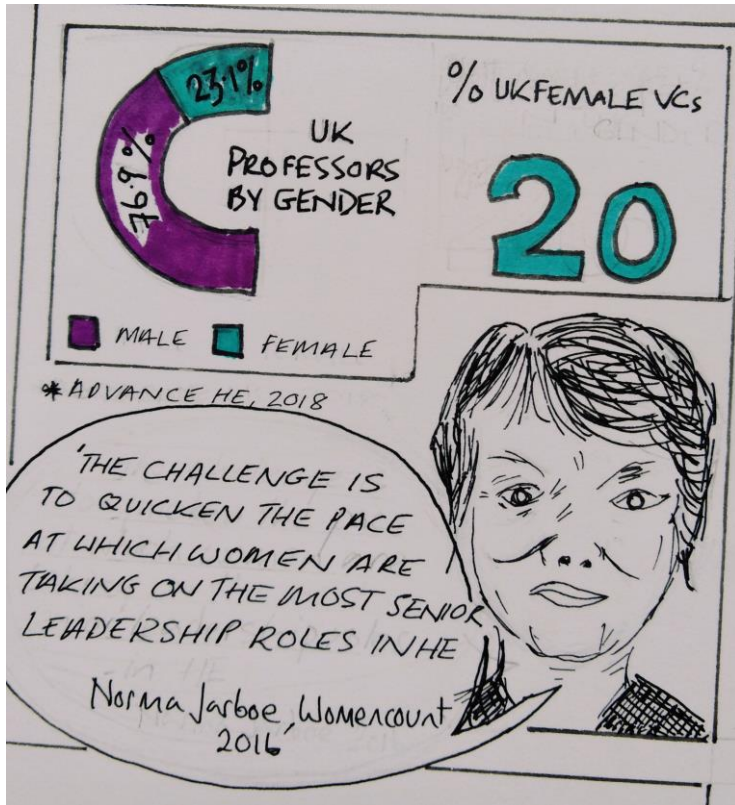 23.1%
76.9%
UK
PROFESSORS
BY GENDER
MALE
FEMALE
% UK FEMALE VCs
20
*ADVANCE HE, 2018
'THE CHALLENGE IS
TO QUICKEN THE PACE
AT WHICH WOMEN ARE
TAKING ON THE MOST SENIOR
LEADERSHIP ROLES IN HE
Norma Jarboe, Womencount
2016